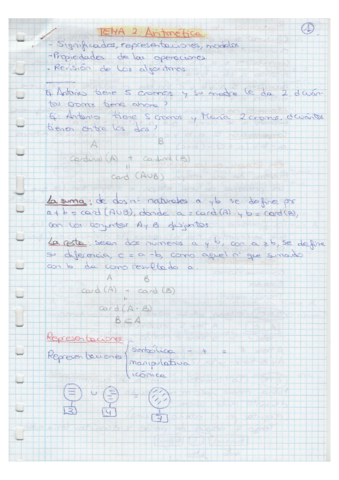 TEMA 2 Aritmética
1
- Significados, representaciones, modelos
- Propiedades de las operaciones
- Revisión de los algoritmos
Antonio tiene 5 cromos y su madre le da 2 ¿cuántos cromos tiene ahora?
Antonio tiene 5 cromos y María 2 cromos. ¿cuántos tienen entre los dos?
A B
cardinal (A) + cardinal (B)
=
card (A∪B)
La suma: de dos n. naturales a y b se define por
a + b = card (A∪B), donde a = card (A) y b = card (B),
con los conjuntos A y B disjuntos.
La resta: sean dos números a y b, con a ≥ b, se define
su diferencia c = a - b, como aquel nº que sumado
con b da como resultado a.
A B
card (A) - card (B)
=
card (A-B)
B ⊂ A
Representaciones
Representaciones { simbólica - + =
manipulativa
icónica
3 4 7